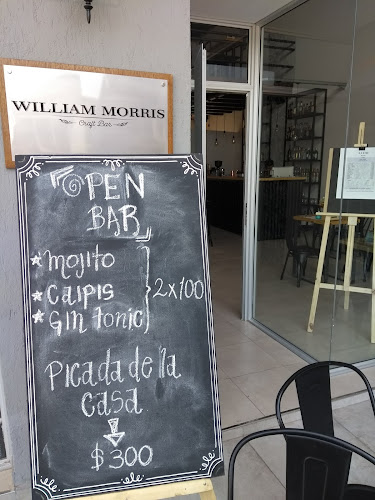 WILLIAM MORRIS
Craft Bar
OPEN
BAR
Mojito
Caipis
Gin tonic
2x100
Picada de la
casa
$300